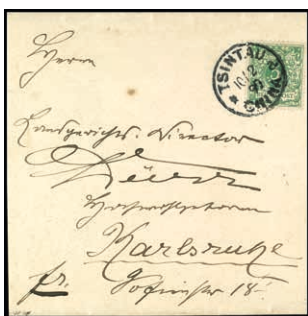 Herrn
TSINTAU
CHINA
10/2
Landgerichts-Director
Hochwohlgeboren
Karlsruhe
fr. Sofienstr 18